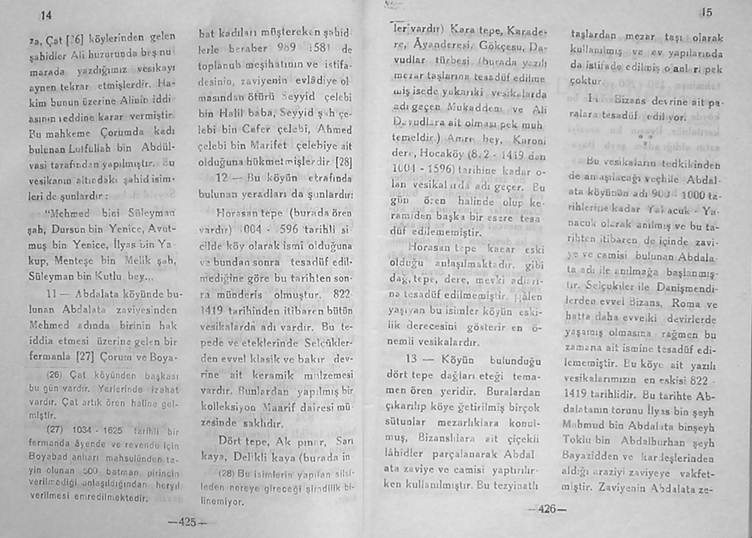 14
za, Çat [26] köylerinden gelen
şahidler Ali huzurunda beş nu
marada yazdığımız vesikayı
aynen tekrar etmişlerdir. Ha-
kim bunun üzerine Alinin iddi
asının reddine karar vermiştir.
Bu mahkeme Çorumda kadı
bulunan Lutfullah bin Abdül-
vasi tarafından yapılmıştır. Bu
vesikanın altındaki şahid isim-
leri de şunlardır :
"Mehmed bini Süleyman
şah, Dursun bin Yenice, Avut-
muş bin Yenice, İlyas bin Ya
kup, Menteşe bin Melik şah,
Süleyman bin Kutlu bey...
11 — Abdalata köyünde bu-
lunan Abdalata zaviyesinden
Mehmed adında birinin hak
iddia etmesi üzerine gelen bir
fermanla [27] Çorum ve Boya-
(26) Çat köyünden başkası
bu gün vardır. Yerlerinde izahat
vardır. Çat artık ören haline gel-
miştir.
(27) 1034 - 1625 tarihli bir
fermanda âyende ve revende için
Boyabad anhari mahsulünden ta-
yin olunan 500 batman pirincin
verilmediği anlaşıldığından heryıl
verilmesi emredilmektedir.
bat kadıları müştereken şahid
lerle beraber 989 1581 de
toplanıb meşihatının ve istifa-
desinin, zaviyenin evlâdiye ol
masından ötürü Seyyid çelebi
bin Halil baba, Seyyid şah çe-
lebi bin Cafer çelebi, Ahmed
çelebi bin Marifet çelebiye ait
olduğuna hükmetmişlerdir [28]
12 — Bu köyün etrafında
bulunan yeradları da şunlardır:
Horasan tepe (burada ören
vardır) 1004 - 596 tarihli si
cilde köy olarak ismi olduğuna
ve bundan sonra tesadüf edil-
mediğine göre bu tarihten son-
ra münderis olmuştur. 822
1419 tarihinden itibaren bütün
vesikalarda adı vardır. Bu te-
pede ve eteklerinde Selçükler-
den evvel klasik ve bakır dev-
rine ait keramik malzemesi
vardır. Bunlardan yapılmış bir
kolleksiyon Maarif dairesi mü
zesinde saklıdır.
Dört tepe, Ak pınar, Sarı
kaya, Delikli kaya (burada in
(28) Bu isimlerin yapılan silsi-
leden nereye gireceği şimdilik bi-
linemiyor.
—425—
15
ler vardır) Kara tepe, Karade-
re, Ayanderesi, Gökçesu, Da-
vudlar türbesi (burada yazılı
mezar taşlarına tesadüf edilme
miş isede yukarıki vesikalarda
adı geçen Mukaddem ve Ali
Davudlara ait olması pek muh
temeldir.) Amre bey, Karoni
dere, Hocaköy (822 - 1419 dan
1004 - 1596) tarihine kadar o-
lan vesikalarda adı geçer. Bu
gün ören halinde olup ke-
ramiden başka bir esere tesa
düf edilememiştir.
Horasan tepe kadar eski
olduğu anlaşılmaktadır. gibi
dağ, tepe, dere, mevki adları-
na tesadüf edilmemiştir. Halen
yaşıyan bu isimler köyün eski-
lik derecesini gösterir en ö-
nemli vesikalardır.
13 — Köyün bulunduğu
dört tepe dağları eteği tema-
men ören yeridir. Buralardan
çıkarılıp köye getirilmiş birçok
sütunlar mezarlıklara konul-
muş, Bizanslılara ait çiçekli
lâhidler parçalanarak Abdal
ata zaviye ve camisi yaptırılır-
ken kullanılmıştır. Bu tezyinatlı
taşlardan mezar taşı olarak
kullanılmış ve ev yapılarında
da istifade edilmiş olanları pek
çoktur.
Bizans devrine ait pa-
ralara tesadüf ediliyor.
* *
*
Bu vesikaların tedkikinden
de anlaşılacağı veçhile Abdal-
ata köyünün adı 900 - 1000 ta-
rihlerine kadar Yanacuk - Ya-
nacuk olarak anılmış ve bu ta-
rihten itibaren de içinde zavi-
ye ve camisi bulunan Abdala-
ta adı ile anılmağa başlanmış-
tır. Selçukiler ile Danişmendi-
lerden evvel Bizans, Roma ve
hatta daha evvelki devirlerde
yaşamış olmasına rağmen bu
zamana ait ismine tesadüf edi-
lememiştir. Bu köye ait yazılı
vesikalarımızın en eskisi 822 -
1419 tarihlidir. Bu tarihte Ab-
dalatanın torunu İlyas bin şeyh
Mahmud bin Abdalata binşeyh
Toklu bin Abdalburhan şeyh
Bayazidden ve kardeşlerinden
aldığı araziyi zaviyeye vakfet-
miştir. Zaviyenin Abdalata ze-
—426—